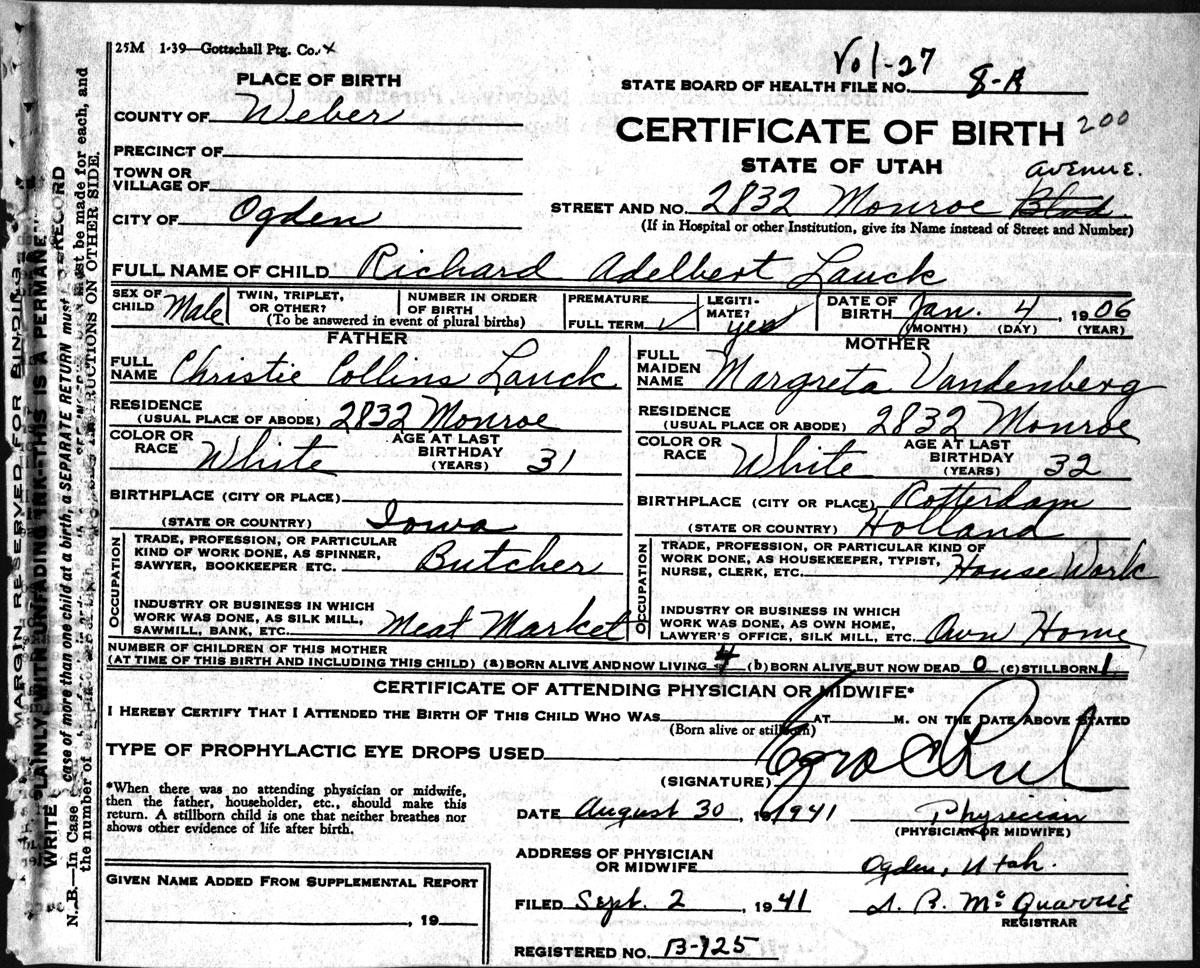 25M 1-39—Gottschall Ptg. Co.
Vol-27
PLACE OF BIRTH
STATE BOARD OF HEALTH FILE NO. 8-R
COUNTY OF Weber
CERTIFICATE OF BIRTH 200
PRECINCT OF
STATE OF UTAH
TOWN OR
VILLAGE OF
AVENUE.
CITY OF Ogden
STREET AND NO. 2832 Monroe Blvd.
(If in Hospital or other Institution, give its Name instead of Street and Number)
FULL NAME OF CHILD Richard Adelbert Lauck
SEX OF CHILD Male
TWIN, TRIPLET, OR OTHER?
NUMBER IN ORDER OF BIRTH
(To be answered in event of plural births)
PREMATURE
FULL TERM ✓
LEGITI-MATE? yes
DATE OF BIRTH Jan. 4, 1906
(MONTH) (DAY) (YEAR)
FATHER
FULL NAME Christie Collins Lauck
RESIDENCE (USUAL PLACE OF ABODE) 2832 Monroe
COLOR OR RACE White AGE AT LAST BIRTHDAY (YEARS) 31
BIRTHPLACE (CITY OR PLACE)
(STATE OR COUNTRY) Iowa
OCCUPATION
TRADE, PROFESSION, OR PARTICULAR
KIND OF WORK DONE, AS SPINNER,
SAWYER, BOOKKEEPER ETC. Butcher
INDUSTRY OR BUSINESS IN WHICH
WORK WAS DONE, AS SILK MILL,
SAWMILL, BANK, ETC. Meat Market
MOTHER
FULL MAIDEN NAME Margreta Vandenberg
RESIDENCE (USUAL PLACE OR ABODE) 2832 Monroe
COLOR OR RACE White AGE AT LAST BIRTHDAY (YEARS) 32
BIRTHPLACE (CITY OR PLACE) Rotterdam
(STATE OR COUNTRY) Holland
OCCUPATION
TRADE, PROFESSION, OR PARTICULAR KIND OF
WORK DONE, AS HOUSEKEEPER, TYPIST,
NURSE, CLERK, ETC. House Work
INDUSTRY OR BUSINESS IN WHICH
WORK WAS DONE, AS OWN HOME,
LAWYER'S OFFICE, SILK MILL, ETC. Own Home
NUMBER OF CHILDREN OF THIS MOTHER
(AT TIME OF THIS BIRTH AND INCLUDING THIS CHILD) (a) BORN ALIVE AND NOW LIVING 4 (b) BORN ALIVE BUT NOW DEAD 0 (c) STILLBORN 1
CERTIFICATE OF ATTENDING PHYSICIAN OR MIDWIFE*
I HEREBY CERTIFY THAT I ATTENDED THE BIRTH OF THIS CHILD WHO WAS AT M. ON THE DATE ABOVE STATED
(Born alive or stillborn)
TYPE OF PROPHYLACTIC EYE DROPS USED
(SIGNATURE)
*When there was no attending physician or midwife,
then the father, householder, etc., should make this
return. A stillborn child is one that neither breathes nor
shows other evidence of life after birth.
DATE August 30, 1941 Physician
(PHYSICIAN OR MIDWIFE)
ADDRESS OF PHYSICIAN
OR MIDWIFE Ogden, Utah.
GIVEN NAME ADDED FROM SUPPLEMENTAL REPORT
, 19
FILED Sept. 2, 1941
REGISTRAR
REGISTERED NO. B-125
MARGIN RESERVED FOR BINDING
THIS IS A PERMANENT RECORD
case of more than one child at a birth, a SEPARATE RETURN must be made for each, and
ON OTHER SIDE.